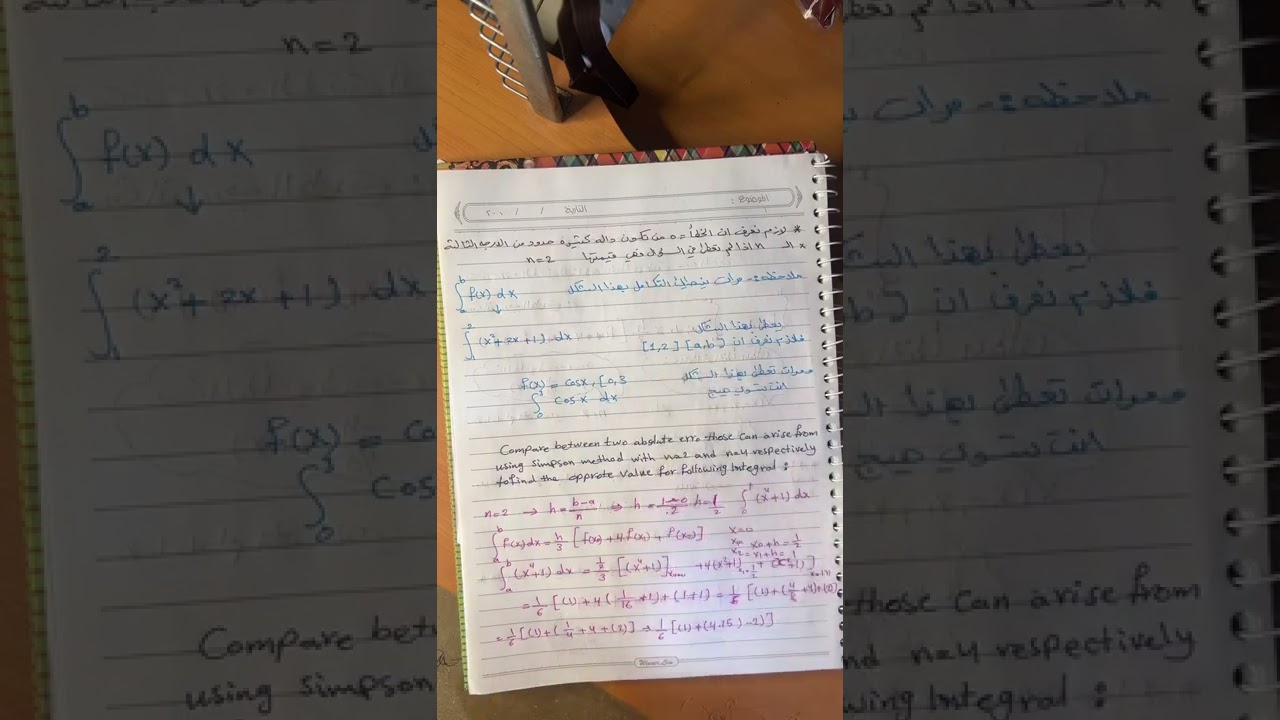 الموضوع : التاريخ / / ٢٠٠
* لازم نعرف ان الخطأ = 0 من تكون داله كثيرة حدود من الدرجه الثالثة
* الـ n اذا لم تعطى في السؤال فهي قيمتها n=2
ملاحظه :- مرات يعطي التكامل بهذا الشكل ∫_a^b f(x) dx
↓
يعطى بهذا الشكل ∫_1^2 (x²+2x+1) dx
فلازم نعرف ان [a,b] [1,2]
ومرات تعطى بهذا الشكل f(x) = cosx, [0,3
انت تسوي صيح ∫_0^3 cosx dx
Compare between two absolute erro those can arise from
using Simpson method with n=2 and n=4 respectively
to find the opprote value for following Integral :
n=2 → h = b-a/n ⇒ h = 1-0/2 h=1/2 ∫_0^1 (x⁴+1) dx
∫_a^b f(x) dx = h/3 [f(x₀) + 4f(x₁) + f(x₂)]
x=0
x₁ = x₀+h = 1/2
x₂ = x₁+h = 1
∫_a^b (x⁴+1) dx = 1/2/3 [(x⁴+1) + 4(x⁴+1) x₁=1/2 + (x⁴+1)]
= 1/6 [(1) + 4(1/16 +1) + (1+1) = 1/6 [(1) + (4/16 +4) + (2)
= 1/6 [(1) + (1/4 + 4 + (2)] → 1/6 [(1) + (4.25) - 2)]